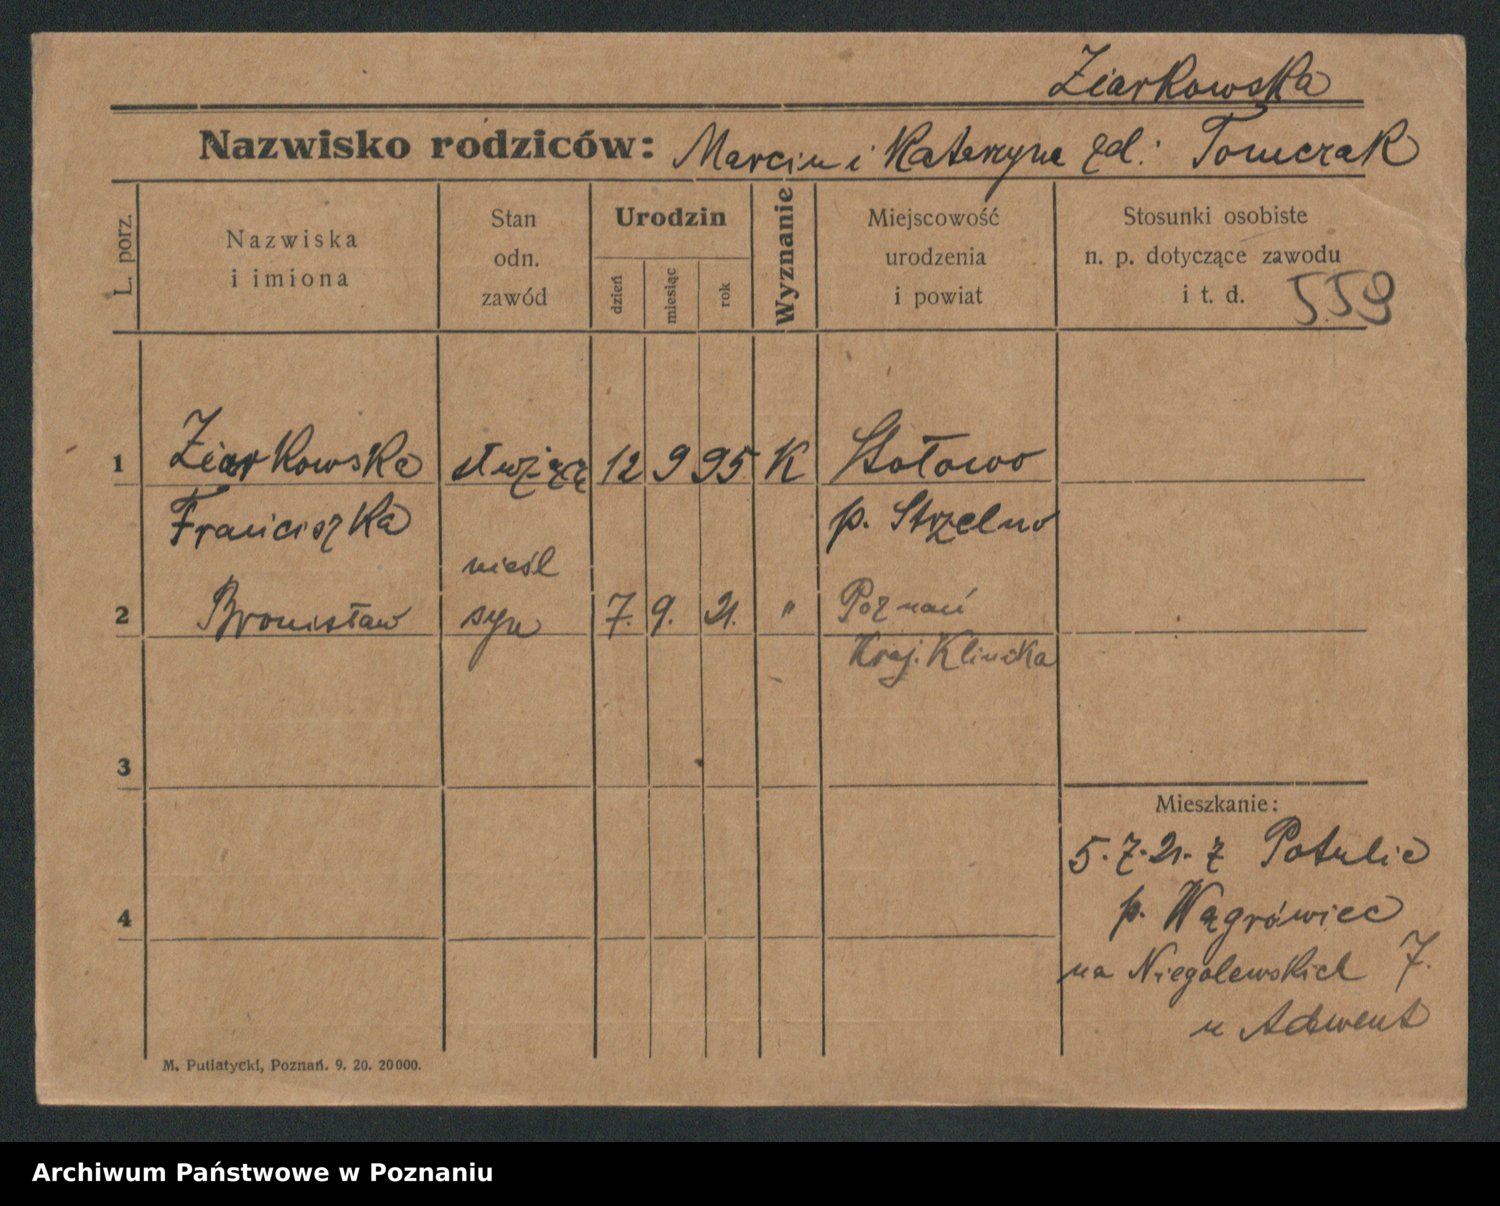 Ziarkowska
Nazwisko rodziców: Marcin i Katarzyna zd: Tomczak
L. porz.
Nazwiska
i imiona
Stan
odn.
zawód
Urodzin
dzień
miesiąc
rok
Wyznanie
Miejscowość
urodzenia
i powiat
Stosunki osobiste
n. p. dotyczące zawodu
i t. d.
559
1 Ziarkowska służąca 12 9 95 K
Franciszka p. Strzelno
nieśl
2 Bronisław syn 7. 9. 21. " Poznań
Kraj. Klinika
3
Mieszkanie:
5.7.21. z Potulic
4 p. Wągrówiec
na Niegolewskich 7.
u Adwent
M. Putiatycki, Poznań. 9. 20. 20000.
Archiwum Państwowe w Poznaniu